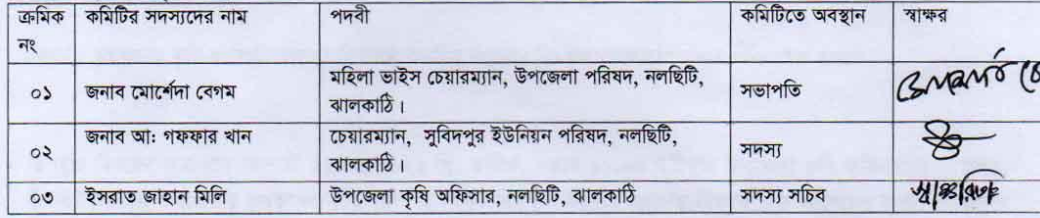 ক্রমিক নং কমিটির সদস্যদের নাম পদবী কমিটিতে অবস্থান স্বাক্ষর
০১ জনাব মোর্শেদা বেগম মহিলা ভাইস চেয়ারম্যান, উপজেলা পরিষদ, নলছিটি, ঝালকাঠি। সভাপতি
০২ জনাব আ: গফফার খান চেয়ারম্যান, সুবিদপুর ইউনিয়ন পরিষদ, নলছিটি, ঝালকাঠি। সদস্য
০৩ ইসরাত জাহান মিলি উপজেলা কৃষি অফিসার, নলছিটি, ঝালকাঠি সদস্য সচিব